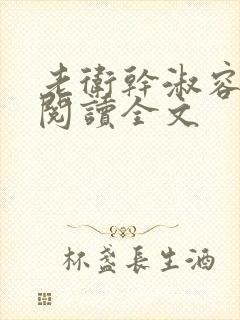 老衛幹淑容
閱讀全文
杯盞長生酒